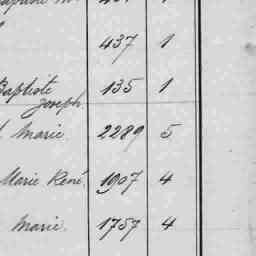 437 1
Baptiste 135 1
Joseph
Marie 2289 5
Marie René 1907 4
Marie. 1757 4